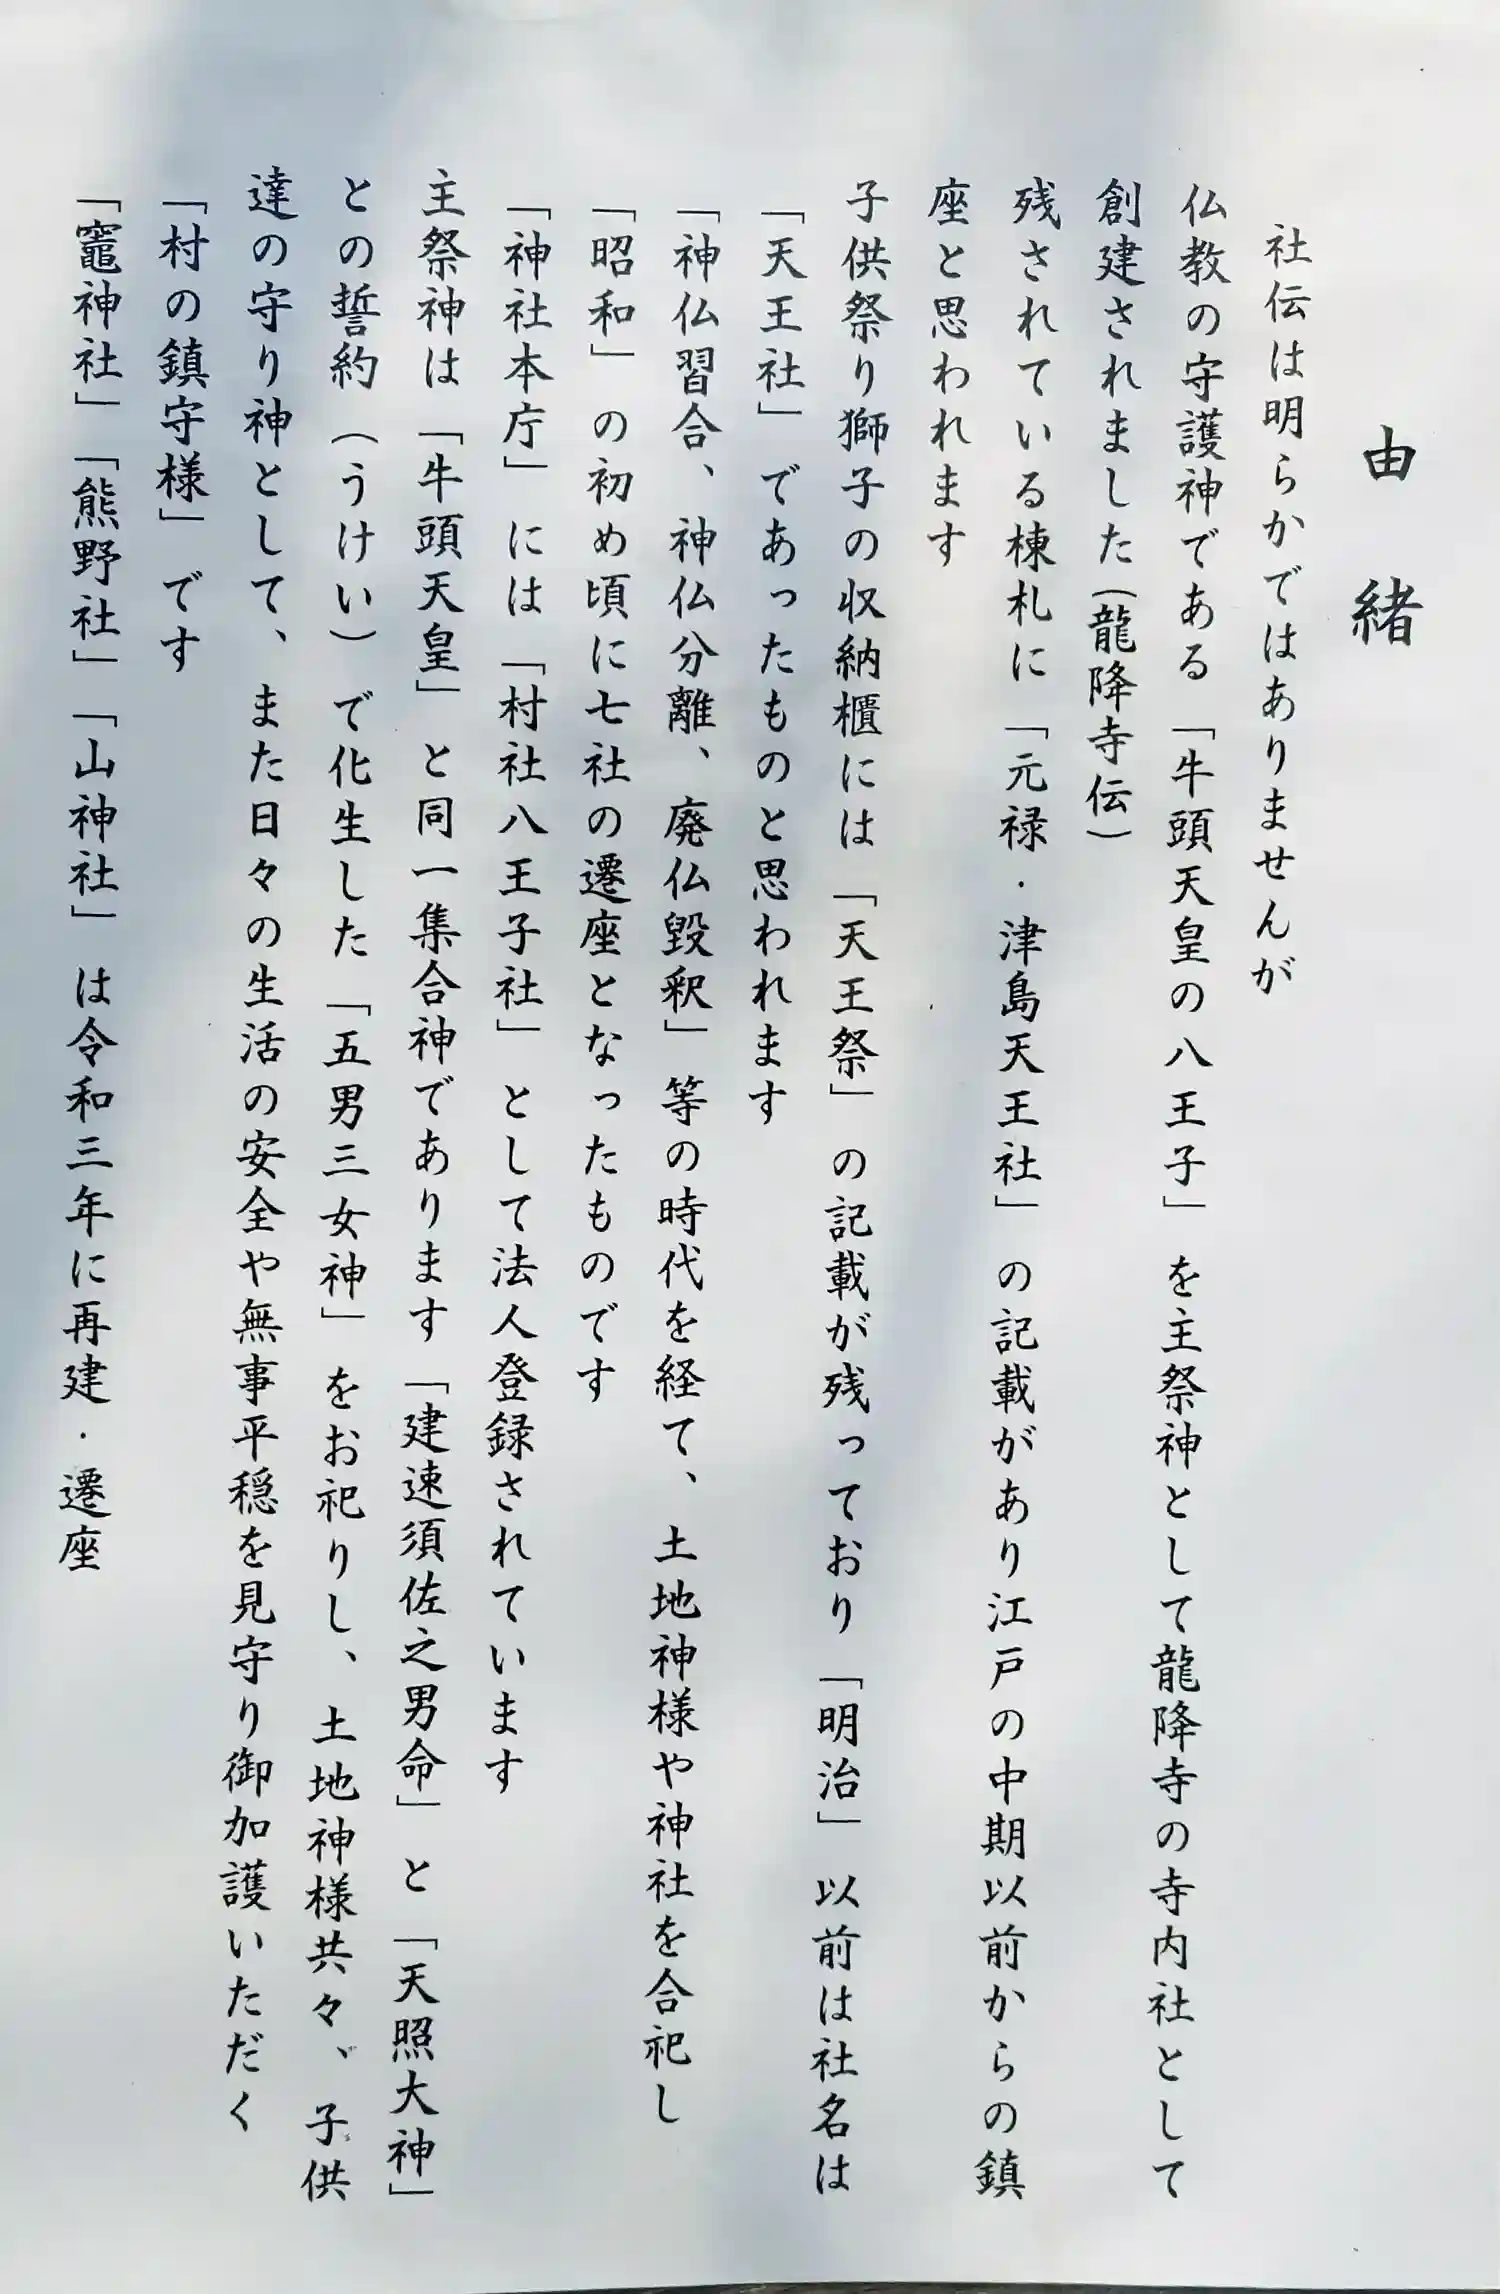 由緒
社伝は明らかではありませんが
仏教の守護神である「牛頭天皇の八王子」を主祭神として龍降寺の寺内社として
創建されました(龍降寺伝)
残されている棟札に「元禄・津島天王社」の記載があり江戸の中期以前からの鎮
座と思われます
子供祭り獅子の収納櫃には「天王祭」の記載が残っており「明治」以前は社名は
「天王社」であったものと思われます
「神仏習合、神仏分離、廃仏毀釈」等の時代を経て、土地神様や神社を合祀し
「昭和」の初め頃に七社の遷座となったものです
「神社本庁」には「村社八王子社」として法人登録されています
主祭神は「牛頭天皇」と同一集合神であります「建速須佐之男命」と「天照大神」
との誓約（うけい）で化生した「五男三女神」をお祀りし、土地神様共々、子供
達の守り神として、また日々の生活の安全や無事平穏を見守り御加護いただく
「村の鎮守様」です
「竈神社」「熊野社」「山神社」は令和三年に再建・遷座